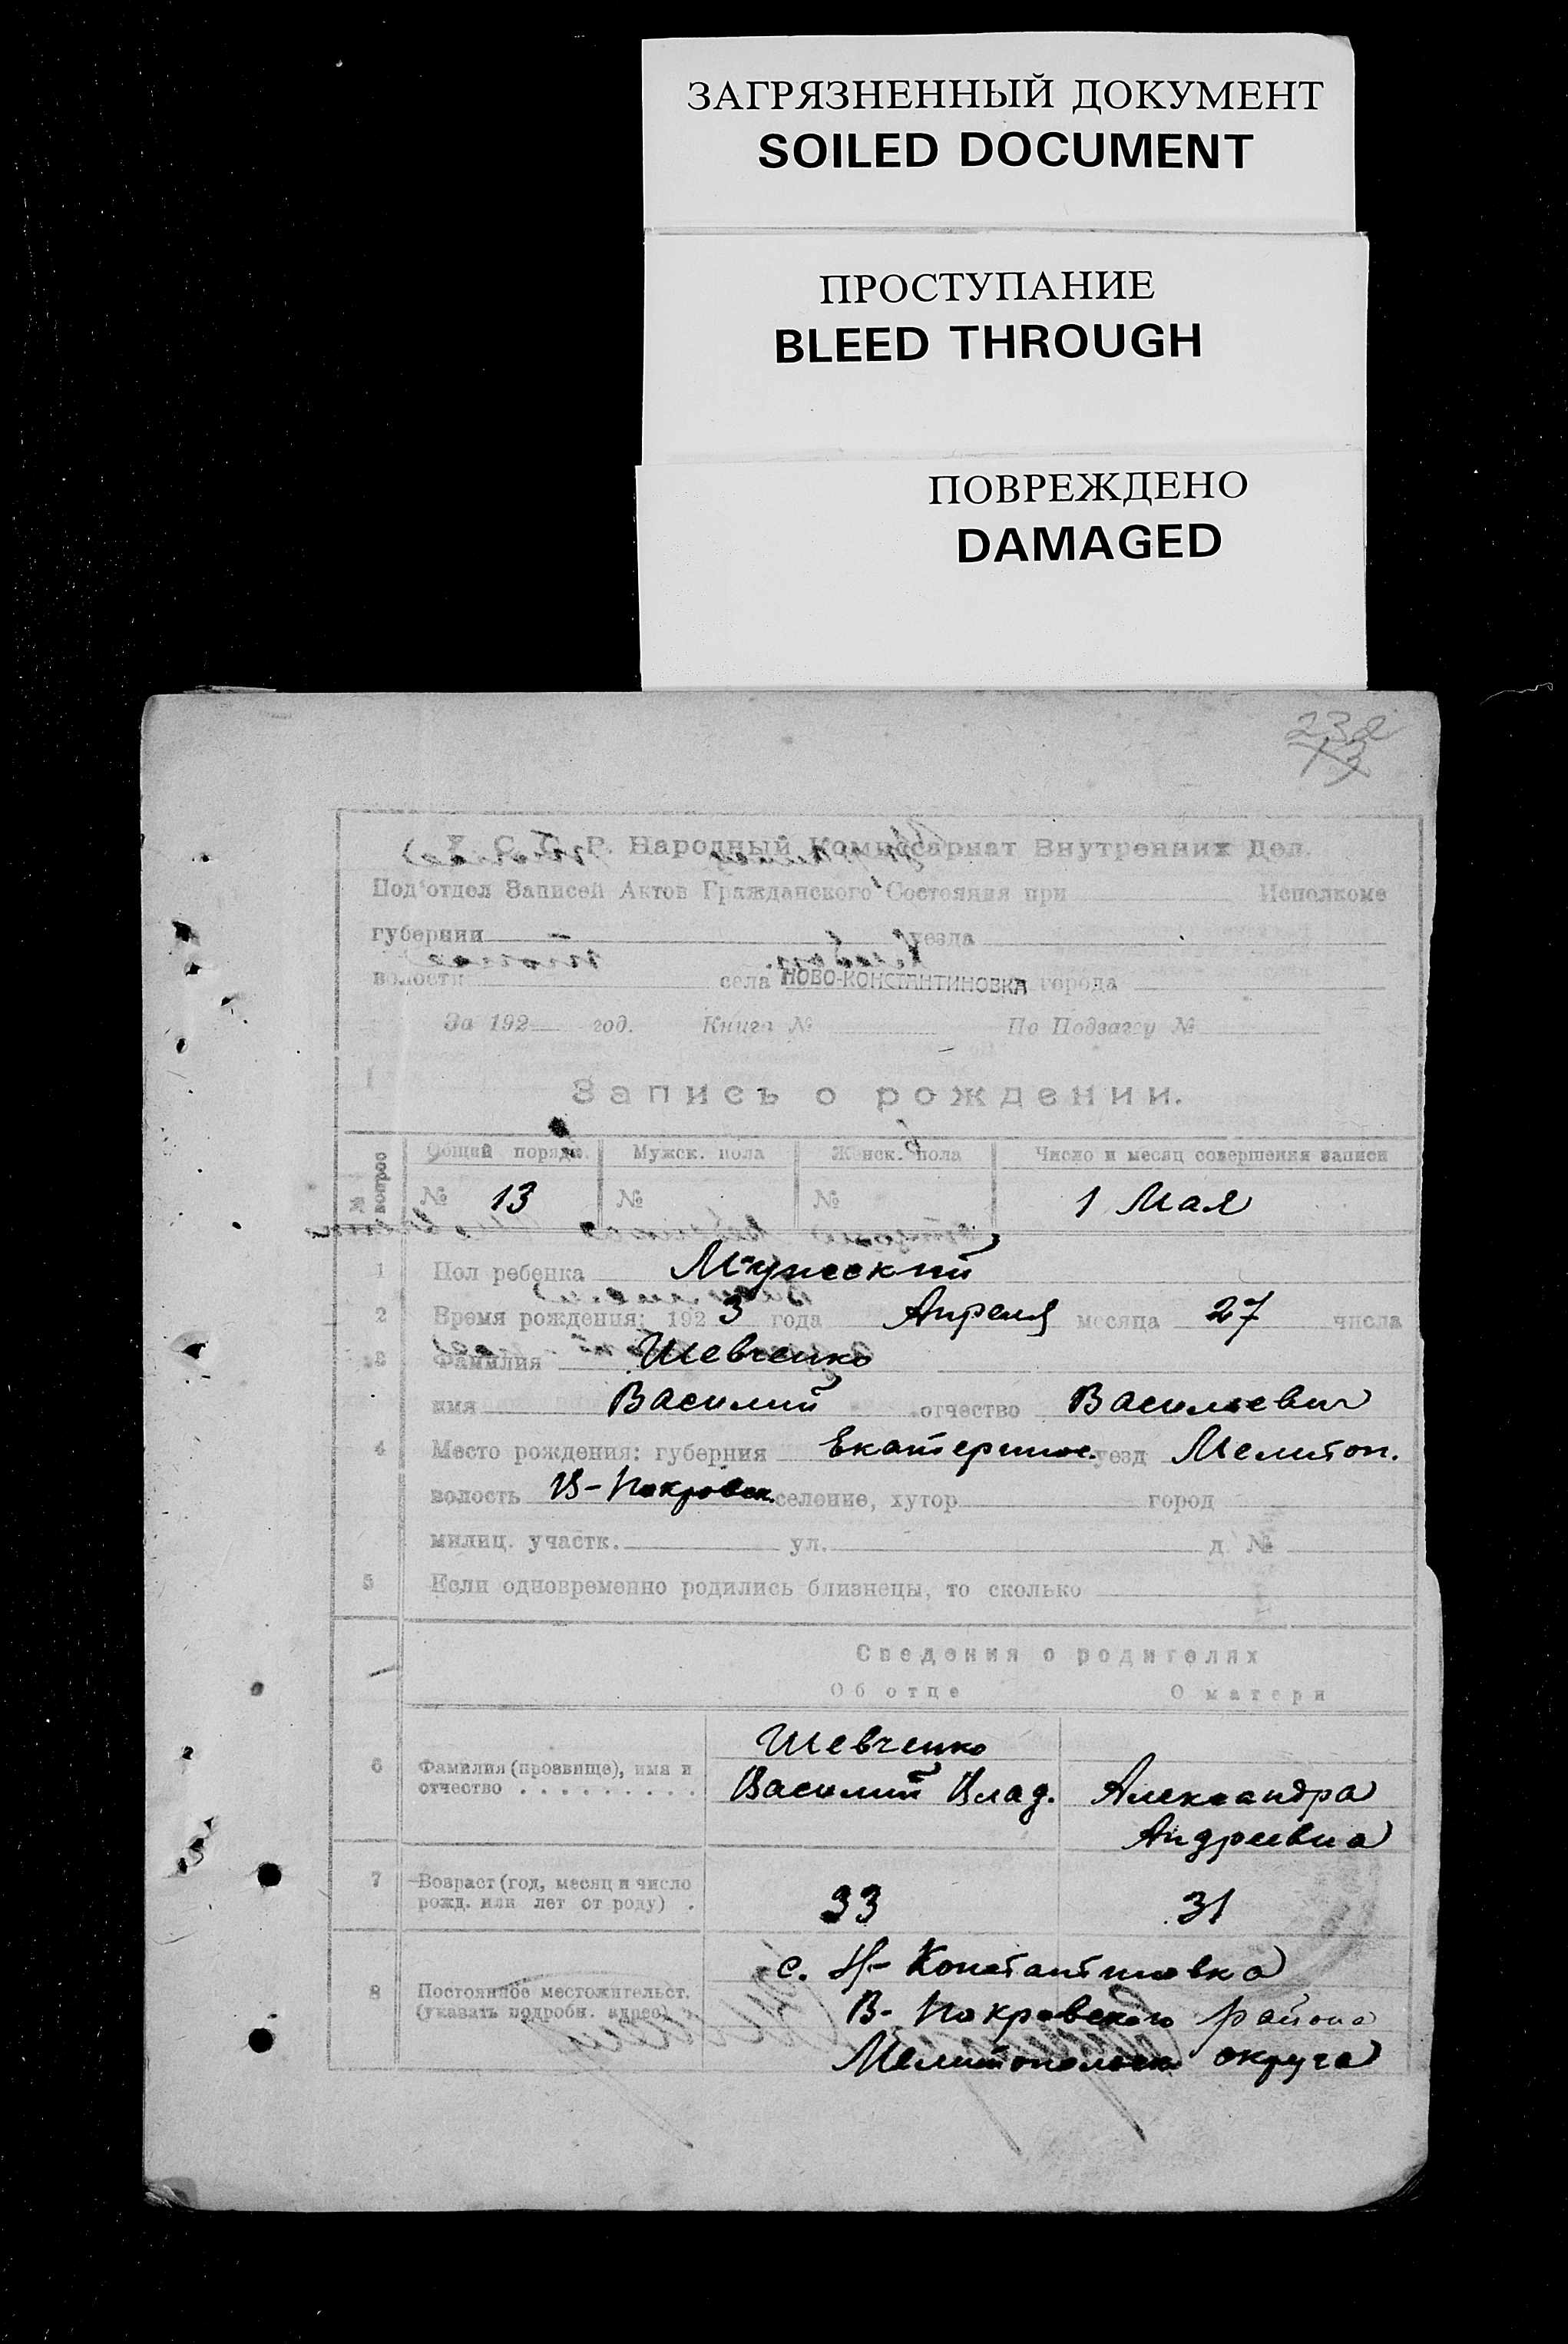 ЗАГРЯЗНЕННЫЙ ДОКУМЕНТ
SOILED DOCUMENT
ПРОСТУПАНИЕ
BLEED THROUGH
ПОВРЕЖДЕНО
DAMAGED
232
13
У. С. С. Р. Народный Комиссариат Внутренних Дел.
Под'отдел Записей Актов Гражданского Состояния при Исполкоме
губернии уезда
волости села НОВО-КОНСТАНТИНОВКА города
За 192 год. Книга № По Подзагсу №
Запись о рождении.
№ вопрос Общий порядк. Мужск. пола Женск. пола Число и месяц совершения записи
№ 13 № № 1 Мая
1 Пол ребенка Мужеский
2 Время рождения: 192 3 года Апреля месяца 27 числа
3 Фамилия Шевченко
имя Василий отчество Васильевич
4 Место рождения: губерния Екатеринос. уезд Мелитоп.
волость В-Покровск. селение, хутор город
милиц. участк. ул. д №
5 Если одновременно родились близнецы, то сколько
Сведения о родителях
Об отце О матери
Шевченко
6 Фамилия (прозвище), имя и отчество Василий Влад. Александра
Андреевна
7 Возраст (год, месяц и число
рожд. или лет от роду) 33 31
с. Н-Константиновка
8 Постоянное местожительст.
(указать подробн. адрес) В-Покровского района
Мелитопольск округа